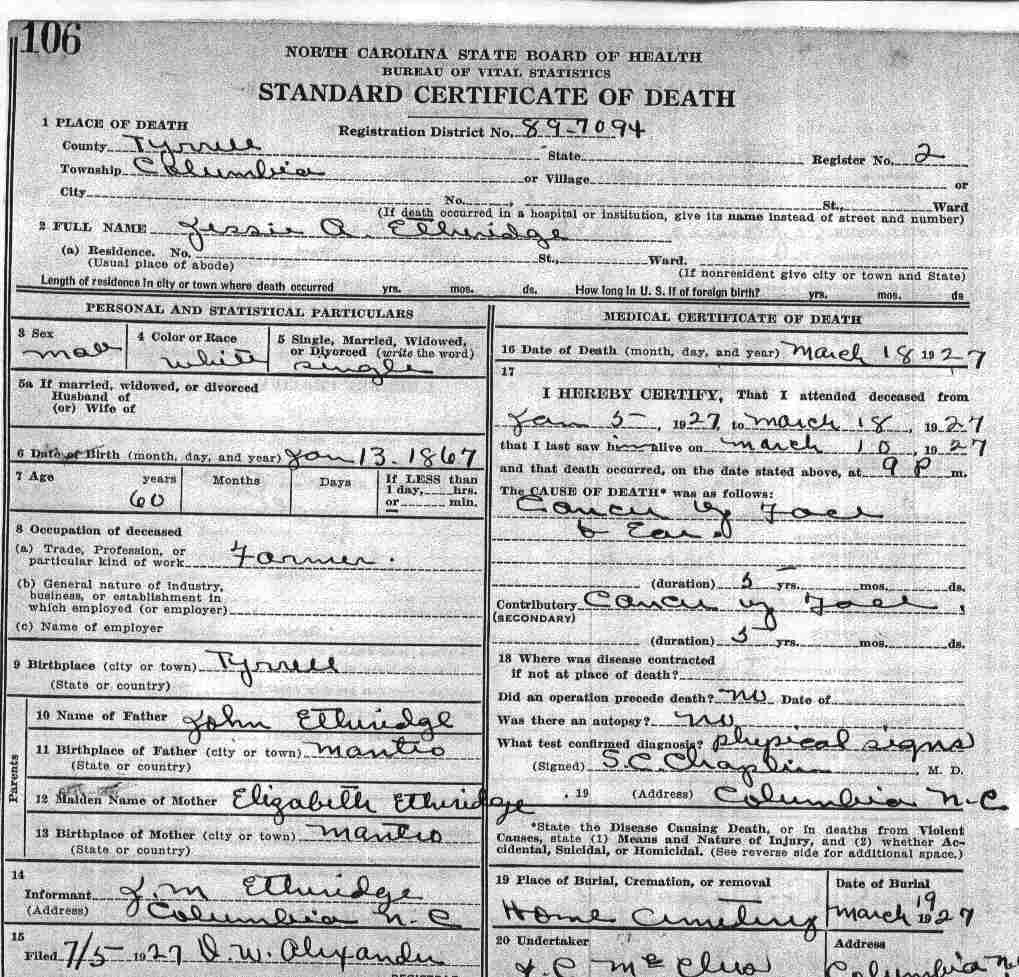 106
NORTH CAROLINA STATE BOARD OF HEALTH
BUREAU OF VITAL STATISTICS
STANDARD CERTIFICATE OF DEATH
1 PLACE OF DEATH
Registration District No. 89-7094
County Tyrrell State Register No. 2
Township Columbia or Village or
City No. , St., Ward
(If death occurred in a hospital or institution, give its name instead of street and number)
2 FULL NAME Jessie A. Etheridge
(a) Residence. No. St., Ward.
(Usual place of abode) (If nonresident give city or town and State)
Length of residence in city or town where death occurred yrs. mos. ds. How long in U. S. if of foreign birth? yrs. mos. ds
PERSONAL AND STATISTICAL PARTICULARS
3 Sex 4 Color or Race 5 Single, Married, Widowed, or Divorced (write the word)
male white single
5a If married, widowed, or divorced
Husband of
(or) Wife of
6 Date of Birth (month, day, and year) Jan 13. 1867
7 Age years Months Days If LESS than
1 day, hrs.
60 or min.
8 Occupation of deceased
(a) Trade, Profession, or
particular kind of work Farmer.
(b) General nature of industry,
business, or establishment in
which employed (or employer)
(c) Name of employer
9 Birthplace (city or town) Tyrrell
(State or country)
Parents
10 Name of Father John Etheridge
11 Birthplace of Father (city or town) Manteo
(State or country)
12 Maiden Name of Mother Elizabeth Etheridge
13 Birthplace of Mother (city or town) Manteo
(State or country)
14
Informant J. M Etheridge
(Address) Columbia N. C
15
Filed 7/5 1927 D. W. Alexander
MEDICAL CERTIFICATE OF DEATH
16 Date of Death (month, day, and year) March 18 1927
17
I HEREBY CERTIFY, That I attended deceased from
Jan 5, 1927, to March 18, 1927
that I last saw him alive on March 10, 1927
and that death occurred, on the date stated above, at 9 P m.
The CAUSE OF DEATH* was as follows:
Cancer of Face
& Ear
(duration) 5 yrs. mos. ds.
Contributory Cancer of Face
(SECONDARY)
(duration) 5 yrs. mos. ds.
18 Where was disease contracted
if not at place of death?
Did an operation precede death? No Date of
Was there an autopsy? No
What test confirmed diagnosis? physical signs
(Signed) S. C. Chaplin, M. D.
, 19 (Address) Columbia N-C
*State the Disease Causing Death, or in deaths from Violent
Causes, state (1) Means and Nature of Injury, and (2) whether Ac-
cidental, Suicidal, or Homicidal. (See reverse side for additional space.)
19 Place of Burial, Cremation, or removal Date of Burial
Home Cemetery March 19 1927
20 Undertaker Address
Columbia